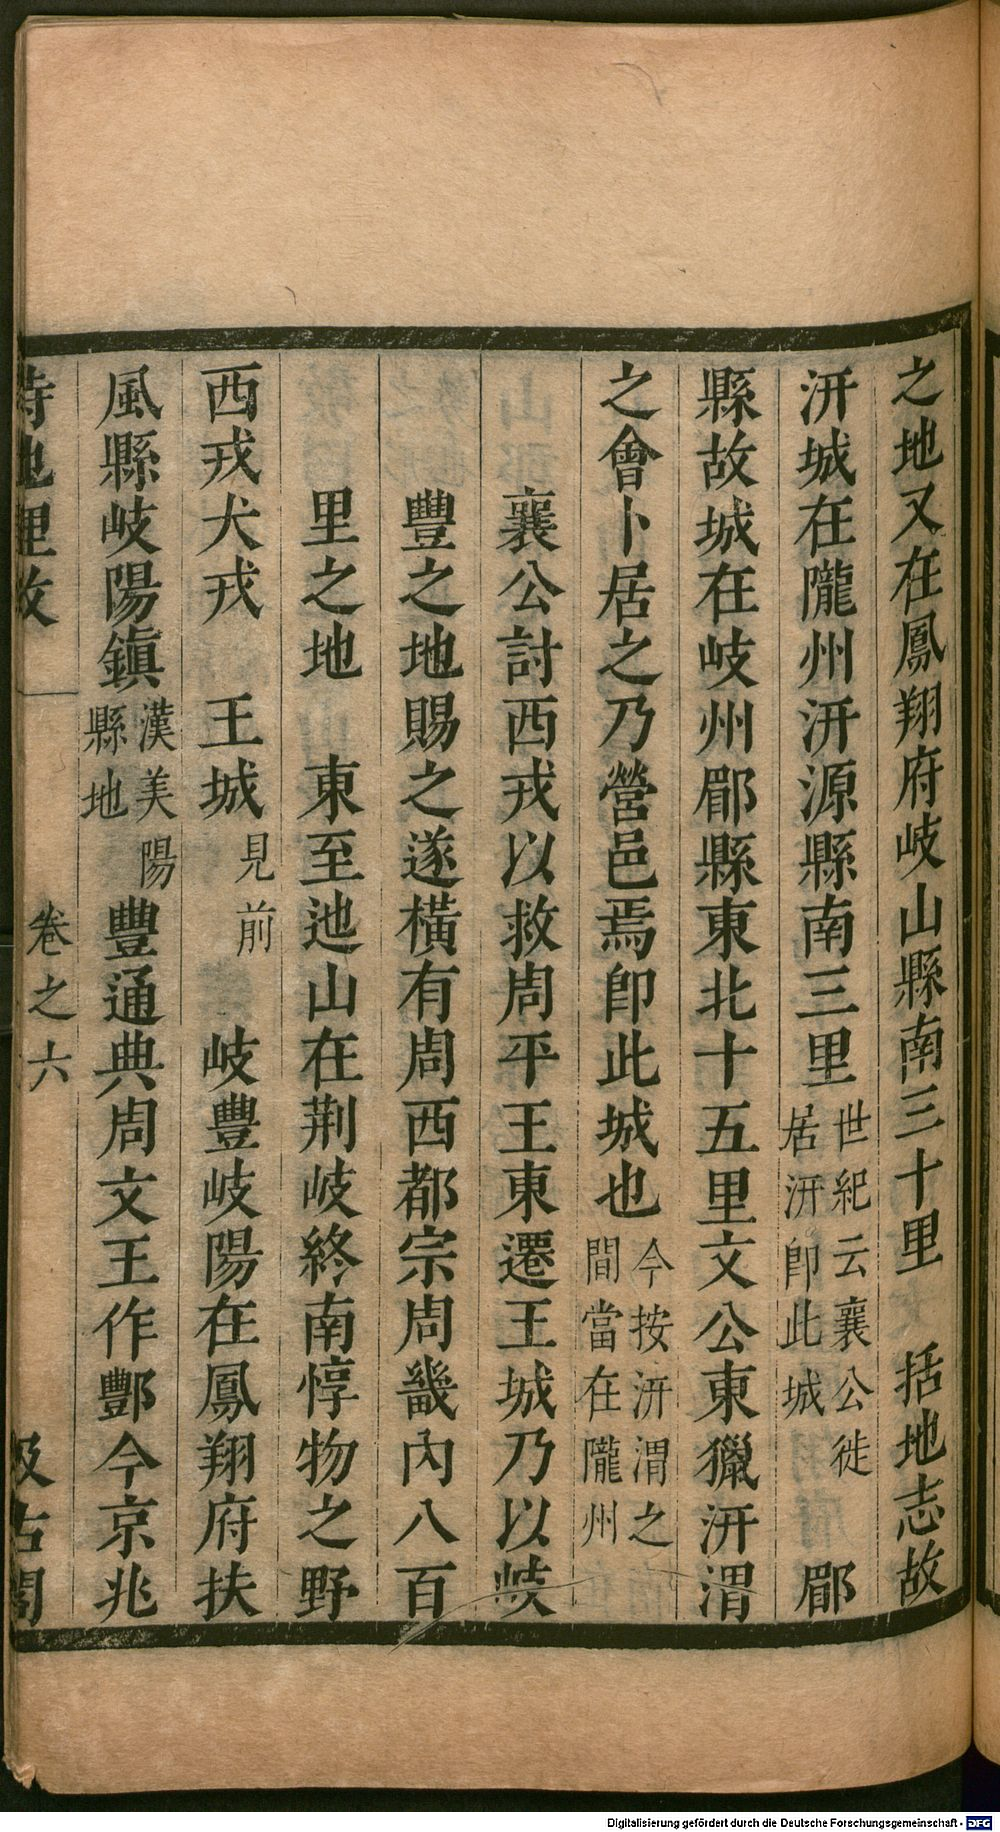 之地又在鳳翔府岐山縣南三十里　括地志故
汧城在隴州汧源縣南三里世紀云襄公徙居汧卽此城　郿
縣故城在岐州郿縣東北十五里文公東獵汧渭
之會卜居之乃營邑焉卽此城也今按汧渭之間當在隴州
襄公討西戎以救周平王東遷王城乃以岐
豐之地賜之遂橫有周西都宗周畿內八百
里之地　東至迆山在荆岐終南惇物之野
西戎犬戎　王城見前　岐豐岐陽在鳳翔府扶
風縣岐陽鎭漢美陽縣地豐通典周文王作酆今京兆
詩地里攷　卷之六　汲古閣
Digitalisierung gefördert durch die Deutsche Forschungsgemeinschaft - DFG